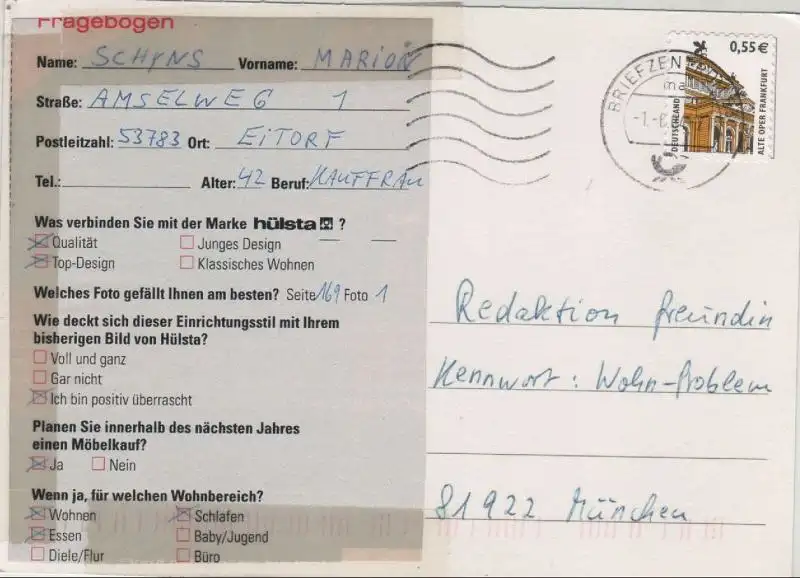 Fragebogen
Name: SCHYNS Vorname: MARION
Straße: AMSELWEG 1
Postleitzahl: 53783 Ort: EITORF
Tel.: Alter: 42 Beruf: KAUFFRAU
Was verbinden Sie mit der Marke hülsta ?
Qualität Junges Design
Top-Design Klassisches Wohnen
Welches Foto gefällt Ihnen am besten? Seite 169 Foto 1
Wie deckt sich dieser Einrichtungsstil mit Ihrem
bisherigen Bild von Hülsta?
Voll und ganz
Gar nicht
Ich bin positiv überrascht
Planen Sie innerhalb des nächsten Jahres
einen Möbelkauf?
Ja Nein
Wenn ja, für welchen Wohnbereich?
Wohnen Schlafen
Essen Baby/Jugend
Diele/Flur Büro
BRIEFZEN
0,55 €
DEUTSCHLAND
ALTE OPER FRANKFURT
Redaktion freundin
Kennwort: Wohn-Problem
81922 München